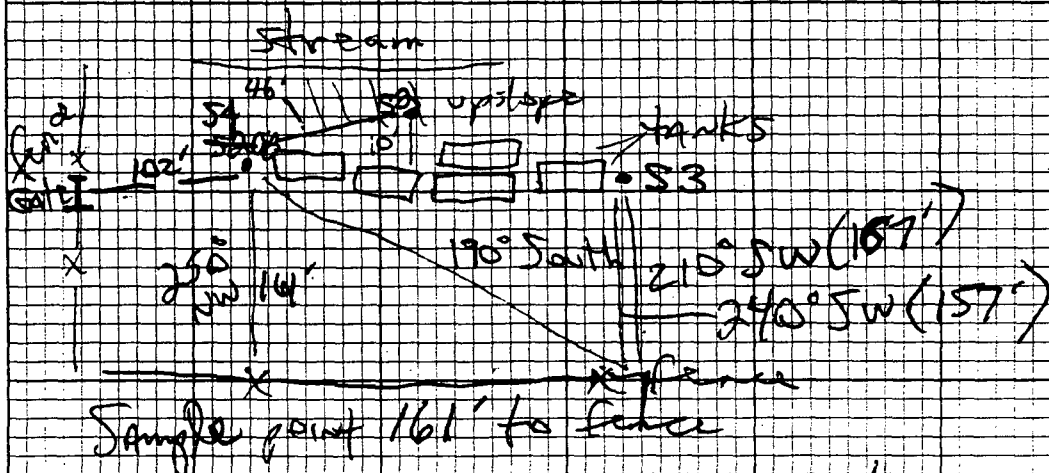 Stream
46'
upslope
S4
TANKS
102'
S3
Gate
190° South
210° SW (167')
161'
240° SW (157')
fence
Sample point 161' to fence